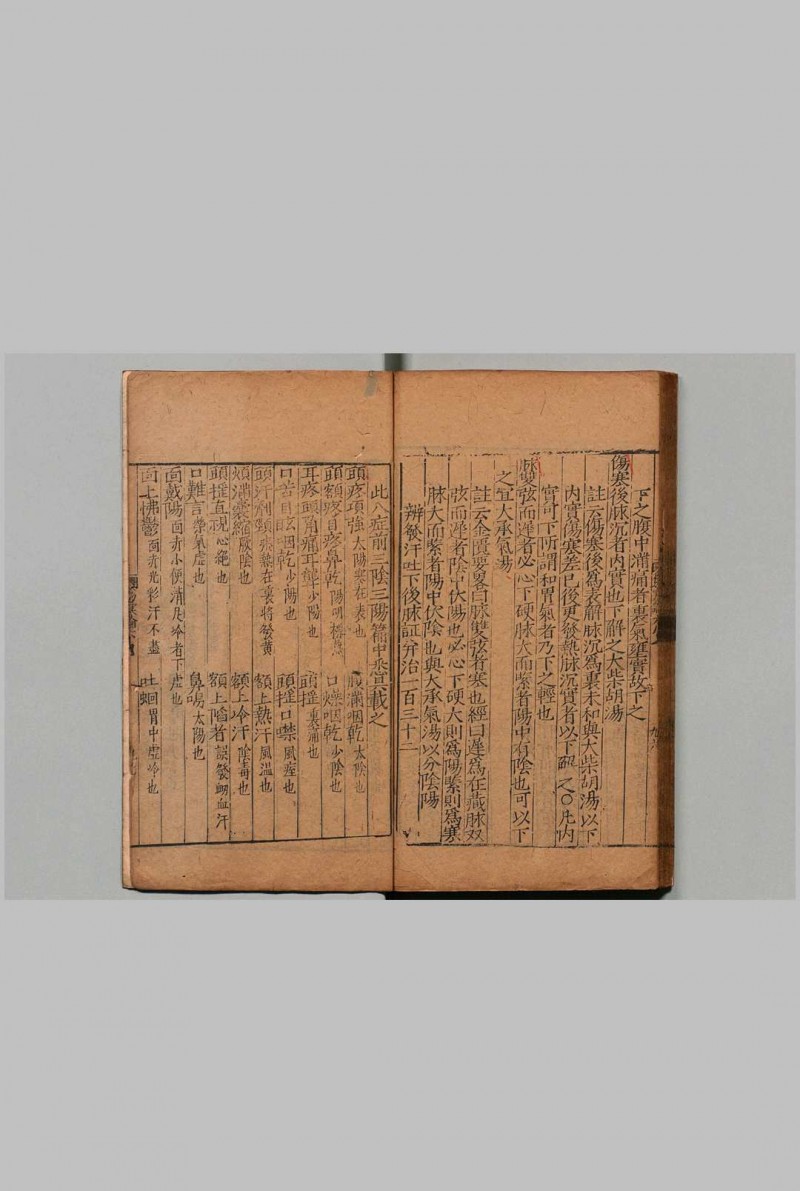 下之腹中滿痛者裏氣壅實故下之
傷寒後脉沉者内實也下解之大柴胡湯
註云傷寒後為表解脉沉為裏未和與大柴胡湯以下
内實傷寒差已後更發熱脉沉實者以下觧之〇凡内
實可下所謂和胃氣者乃下之輕也
脉雙弦而遲者必心下硬脉大而緊者陽中有陰也可以下
之宜大承氣湯
註云金匱要畧曰脉雙弦者寒也經曰遲為在藏脉双
弦而遲者陰中伏陽也必心下硬大則為陽緊則為寒
脉大而緊者陽中伏陰也與大承氣湯以分陰陽
辨發汗吐下後脉証并治一百三十二
此八症前三陰三陽篇中悉具載之
頭疼項強太陽寒在表也 腹滿咽乾太陰也
頭額疼目疼鼻乾陽明 口燥咽乾少陰也
耳疼頭角痛耳聾少陽也 頭揺裏痛也
口苦目眩咽乾少陽也 頭揺口噤風痓也
頭汗劑頸瘀熱在裏將發黃 額上熱汗風温也
煩滿囊縮厥陰也 額上冷汗陰毒也
頭揺直視心絶也 額上陷者誤發衂血汗
口難言帶氣虛也 鼻鳴太陽也
面戴陽面赤小便清足冷者下虛也
面上怫鬱面赤光彩汗不盡 吐蛔胃中虛冷也